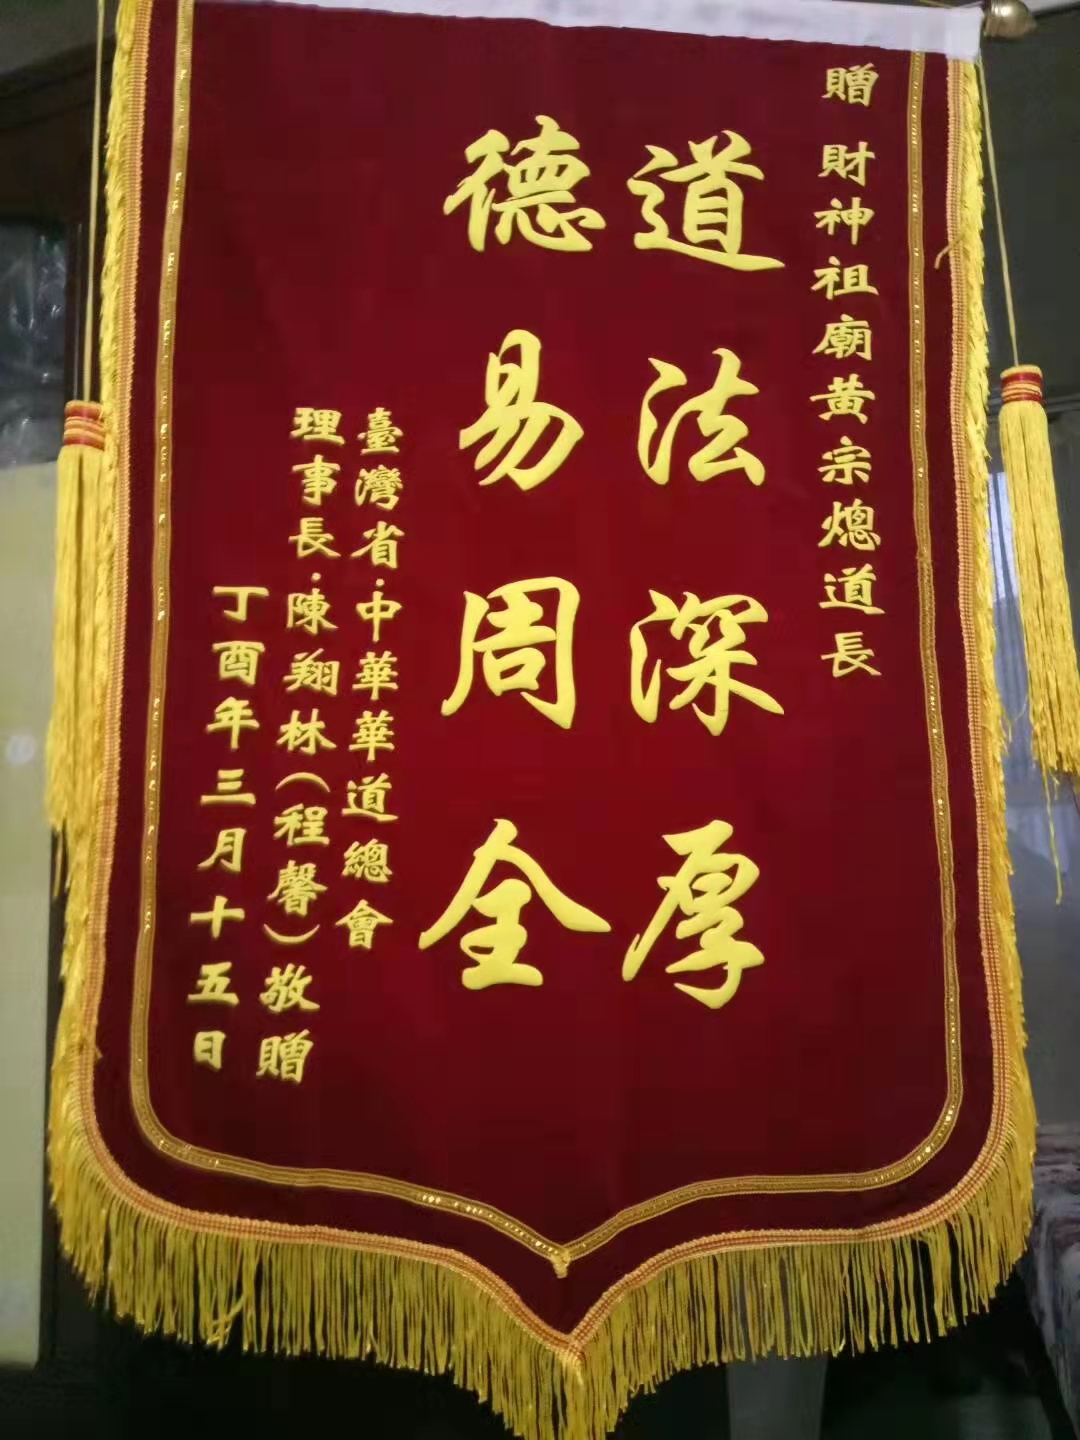 贈 財神祖廟黃宗熜道長
道法深厚
德易周全
臺灣省·中華華道總會
理事長·陳翔林(程馨)敬贈
丁酉年三月十五日